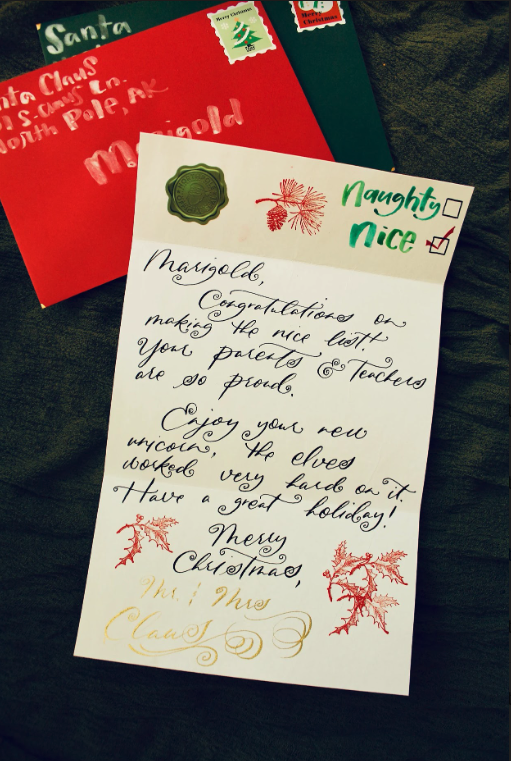 Santa
Merry Christmas
Merry
Christmas
Santa Claus
S. Claus Ln.
North Pole, AK
Marigold
Naughty
Nice
Marigold,
Congratulations on
making the nice list!!
Your parents & Teachers
are so proud.
Enjoy your new
unicorn, the elves
worked very hard on it.
Have a great holiday!
Merry
Christmas,
Mr. & Mrs
Claus